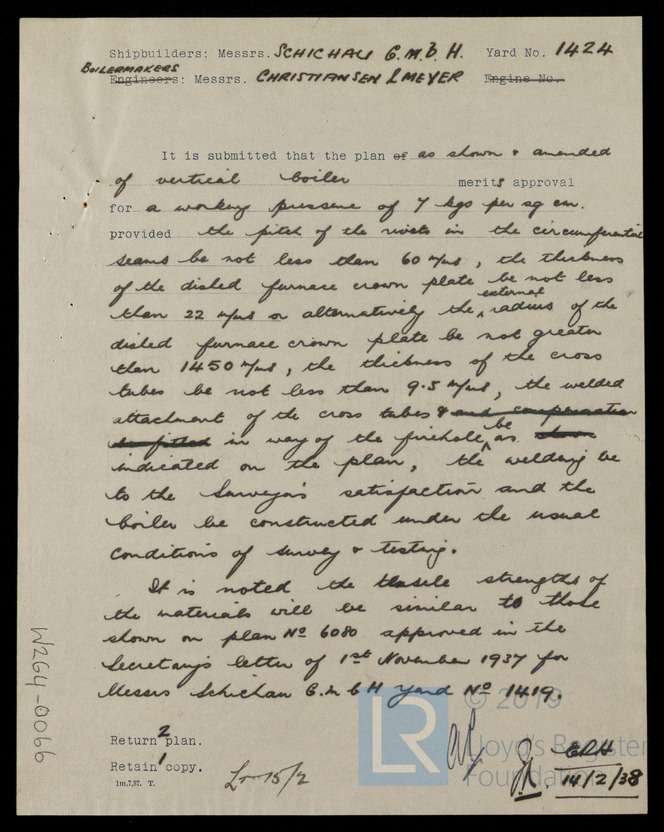 Shipbuilders: Messrs. SCHICHAU G.M.B.H. Yard No. 1424
BOILERMAKERS
Engineers: Messrs. CHRISTIANSEN & MEYER Engine No.
It is submitted that the plan of as shown & amended
of vertical boiler merits approval
for a working pressure of 7 kgs per sq cm.
provided the pitch of the rivets in the circumferential
seams be not less than 60 m/ms, the thickness
of the dished furnace crown plate be not less
than 22 m/ms or alternatively the external radius of the
dished furnace crown plate be not greater
than 1450 m/ms, the thickness of the cross
tubes be not less than 9.5 m/ms, the welded
attachment of the cross tubes & and compensation
be fitted in way of the firehole, be as shown
indicated on the plan, the welding be
to the Surveyor's satisfaction and the
boiler be constructed under the usual
conditions of survey & testing.
It is noted the tensile strengths of
the materials will be similar to those
shown on plan No 6080 approved in the
Secretary's letter of 1st November 1937 for
Messrs Schichau G.m.b.H Yard No 1419.
Return 2 plan.
Retain 1 copy.
1m.7,37. T.
15/2
ERH
14/2/38
W264-0066
© 2019
LR
Lloyd's Register
Foundation